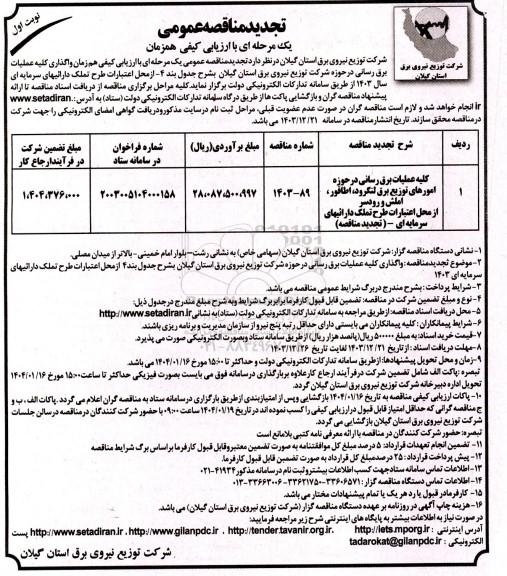 نوبت اول
تجدیدمناقصه عمومی
یک مرحله ای با ارزیابی کیفی همزمان
شرکت توزیع نیروی برق
استان گیلان
شرکت توزیع نیروی برق استان گیلان درنظر دارد تجدیدمناقصه عمومی یک مرحله ای با ارزیابی کیفی همزمان واگذاری کلیه عملیات
برق رسانی در حوزه شرکت توزیع نیروی برق استان گیلان بشرح جدول بند ۴- از محل اعتبارات طرح تملک دارائیهای سرمایه ای
سال ۱۴۰۳ از طریق سامانه تدارکات الکترونیکی دولت برگزار نماید. کلیه مراحل برگزاری مناقصه از دریافت اسناد مناقصه تا ارائه
پیشنهاد مناقصه گران و بازگشایی پاکت ها از طریق درگاه سامانه تدارکات الکترونیکی دولت (ستاد) به آدرس: www.setadiran.
ir انجام خواهد شد و لازم است مناقصه گران در صورت عدم عضویت قبلی، مراحل ثبت نام در سایت مذکور و دریافت گواهی امضای الکترونیکی را جهت شرکت
در مناقصه محقق سازند. تاریخ انتشار مناقصه در سامانه ۱۴۰۳/۱۲/۲۱ می باشد.
ردیف | شرح تجدید مناقصه | شماره مناقصه | مبلغ برآوردی (ریال) | شماره فراخوان در سامانه ستاد | مبلغ تضمین شرکت در فرآیند ارجاع کار
۱ | کلیه عملیات برق رسانی در حوزه امورهای توزیع برق لنگرود، اطاقور، املش و رودسر از محل اعتبارات طرح تملک دارائیهای سرمایه ای - (تجدید مناقصه) | ۱۴۰۳-۸۹ | ۲۸،۰۸۷،۵۰۰،۹۹۷ | ۲۰۰۳۰۰۵۱۰۴۰۰۰۱۵۸ | ۱،۴۰۴،۳۷۶،۰۰۰
۱- نشانی دستگاه مناقصه گزار: شرکت توزیع نیروی برق استان گیلان (سهامی خاص) به نشانی رشت- بلوار امام خمینی- بالاتر از میدان مصلی.
۲- موضوع تجدیدمناقصه: واگذاری کلیه عملیات برق رسانی در حوزه شرکت توزیع نیروی برق استان گیلان بشرح جدول بند ۴ از محل اعتبارات طرح تملک دارائیهای
سرمایه ای ۱۴۰۳
۳- شرایط پرداخت: بشرح مندرج در برگ شرایط عمومی مناقصه می باشد.
۴- نوع و مبلغ تضمین شرکت در مناقصه: تضمین قابل قبول کارفرما برابر برگ شرایط و به شرح مبلغ مندرج در جدول ذیل:
۵- محل دریافت اسناد مناقصه: از طریق مراجعه به سامانه تدارکات الکترونیکی دولت (ستاد) به نشانی http://www.setadiran.ir
۶- شرایط پیمانکاران: کلیه پیمانکاران می بایستی دارای حداقل رتبه پنج نیرو از سازمان مدیریت و برنامه ریزی باشند.
۷- قیمت خرید اسناد: به مبلغ ۵۰۰۰۰۰ ریال (پانصد هزار ریال) از طریق سامانه ستاد وبصورت الکترونیکی صورت می پذیرد.
۸- مهلت دریافت اسناد: از تاریخ ۱۴۰۳/۱۲/۲۱ لغایت تاریخ ۱۴۰۳/۱۲/۲۶
۹- زمان و محل تحویل پیشنهادها: از طریق سامانه تدارکات الکترونیکی دولت و حداکثر تا ۱۵:۰۰ مورخ ۱۴۰۴/۰۱/۱۶ می باشد.
تبصره: پاکت الف شامل تضمین شرکت در فرآیند ارجاع کار علاوه بر بارگذاری در سامانه فوق می بایست بصورت فیزیکی حداکثر تا ساعت ۱۵:۰۰ مورخ ۱۴۰۴/۰۱/۱۶
تحویل اداره دبیرخانه شرکت توزیع نیروی برق استان گیلان گردد.
۱۰- پاکات ارزیابی کیفی مناقصه به تاریخ ۱۴۰۴/۰۱/۱۶ بازگشایی و پس از امتیازبندی از طریق بارگزاری در سامانه ستاد به مناقصه گران اعلام می گردد. پاکات الف، ب و
ج مناقصه گرانی که حداقل امتیاز قابل قبول در ارزیابی کیفی را کسب نموده اند در تاریخ ۱۴۰۴/۰۱/۱۹ ساعت ۰۹:۰۰ با حضور شرکت کنندگان در مناقصه در سالن جلسات
شرکت توزیع نیروی برق استان گیلان بازگشایی می گردد.
تبصره: حضور شرکت کنندگان در مناقصه با ارائه معرفی نامه کتبی بلامانع است
۱۱- تضمین انجام تعهدات قرارداد: ۵ درصد مبلغ کل موافقتنامه به صورت تضمین معتبر و قابل قبول کارفرما بر اساس برگ شرایط مناقصه
۱۲- پیش پرداخت قرارداد: ۲۵ درصد مبلغ کل قرارداد به صورت تضمین قابل قبول کارفرما.
۱۳- اطلاعات تماس سامانه ستاد جهت کسب اطلاعات بیشتر و ثبت نام در سامانه مذکور ۴۱۹۳۴-۰۲۱
۱۴- اطلاعات تماس دستگاه مناقصه گزار: ۳۳۶۰۶۵۷۱-۳۳۶۲۱۷۵۰-۳۳۶۶۳۰۰۶-۰۱۳
۱۵- کارفرما در قبول یا رد هر یک یا تمام پیشنهادات مختار می باشد.
۱۶- هزینه چاپ آگهی در روزنامه بر عهده دستگاه مناقصه گزار (شرکت توزیع نیروی برق استان گیلان) می باشد.
در صورت نیاز به اطلاعات بیشتر به پایگاه های اینترنتی شرح زیر مراجعه فرمایید:
آدرس اینترنتی: http://iets.mporg.ir ،http://tender.tavanir.org.ir ،http://www.gilanpdc.ir ،http://www.setadiran.ir پست
الکترونیکی: tadarokat@gilanpdc.ir
شرکت توزیع نیروی برق استان گیلان